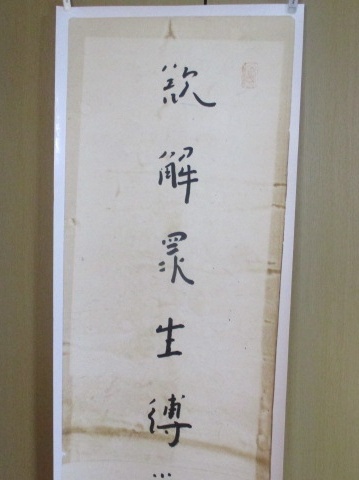 欲解眾生縛